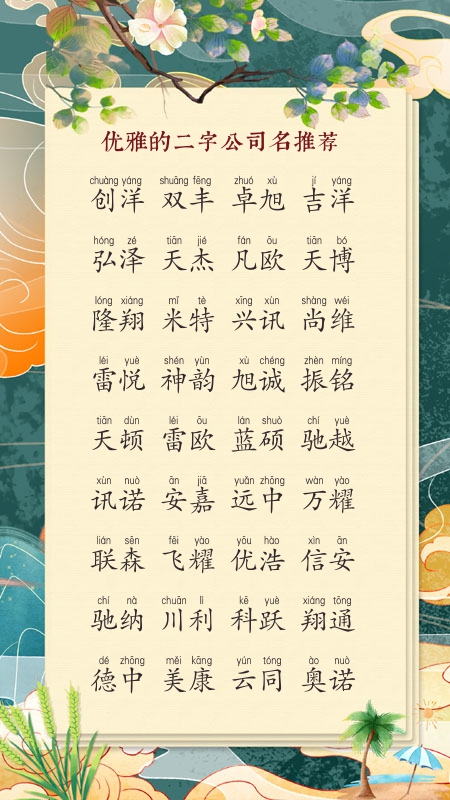 优雅的二字公司名推荐
chuàng yáng shuāng fēng zhuó xù jí yáng
创洋 双丰 卓旭 吉洋
hóng zé tiān jié fán ōu tiān bó
弘泽 天杰 凡欧 天博
lóng xiáng mǐ tè xīng xùn shàng wéi
隆翔 米特 兴讯 尚维
léi yuè shén yùn xù chéng zhèn míng
雷悦 神韵 旭诚 振铭
tiān dùn léi ōu lán shuò chí yuè
天顿 雷欧 蓝硕 驰越
xùn nuò ān jiā yuǎn zhōng wàn yào
讯诺 安嘉 远中 万耀
lián sēn fēi yào yōu hào xìn ān
联森 飞耀 优浩 信安
chí nà chuān lì kē yuè xiáng tōng
驰纳 川利 科跃 翔通
dé zhōng měi kāng yún tóng ào nuò
德中 美康 云同 奥诺